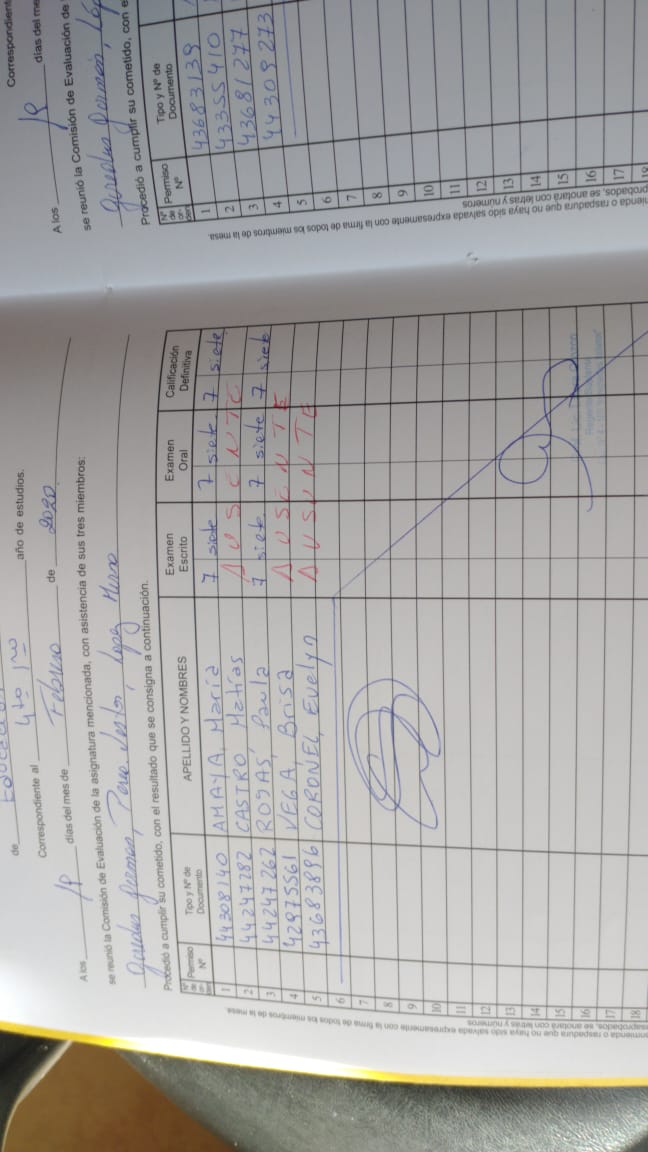 de
Correspondiente al 4to 1ro año de estudios.
A los 18 días del mes de Febrero de 2020
se reunió la Comisión de Evaluación de la asignatura mencionada, con asistencia de sus tres miembros:
German, Perea Nestor, Lopez
Procedió a cumplir su cometido, con el resultado que se consigna a continuación.
Nº de or-den Permiso Nº Tipo y Nº de Documento APELLIDO Y NOMBRES Examen Escrito Examen Oral Calificación Definitiva
1 44308140 AMAYA, María 7 siete 7 siete 7 siete
2 44247282 CASTRO, Matías AUSENTE
3 44247262 ROJAS, Paula 7 siete 7 siete 7 siete
4 42975561 VEGA, Brisa AUSENTE
5 43683896 CORONEL, Evelyn AUSENTE
6
7
8
9
10
11
12
13
14
15
16
17
18
Regente
nmienda o raspadura que no haya sido salvada expresamente con la firma de todos los miembros de la mesa.
saprobados, se anotará con letras y números
Correspondient
A los 18 días del me
se reunió la Comisión de Evaluación de
German, López
Procedió a cumplir su cometido, con e
Nº de or-den Permiso Nº Tipo y Nº de Documento
1 43683139
2 43355410
3 43681277
4 44309273
5
6
7
8
9
10
11
12
13
14
15
16
17
18
mienda o raspadura que no haya sido salvada expresamente con la firma de todos los miembros de la mesa.
probados, se anotará con letras y números